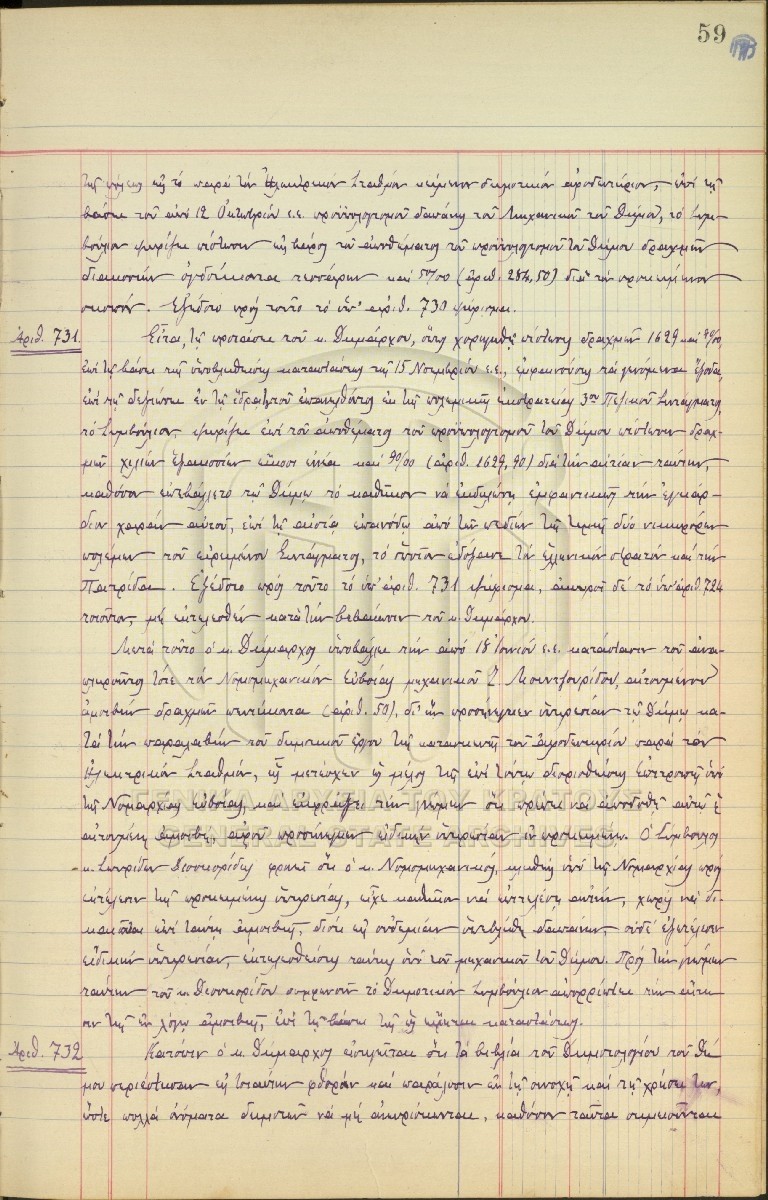 59
τῆς πόλεως εἰς τὸ παρὰ τὴν Ἠλεκτρικὸν Σταθμὸν κείμενον δημοτικὸν ἀφοδευτήριον, ἐπὶ τῇ
βάσει τοῦ ἀπὸ 12 Ὀκτωβρίου ἐ.ἔ. προϋπολογισμοῦ δαπάνης τοῦ Μηχανικοῦ τοῦ Δήμου, τὸ Συμ-
βούλιον ψηφίζει πίστωσιν εἰς βάρος τοῦ ἀποθέματος τοῦ προϋπολογισμοῦ τοῦ Δήμου δραχμῶν
διακοσίων ὀγδοήκοντα τεσσάρων καὶ 50/00 (ἀριθ. 284,50) διὰ τὸν προκείμενον
σκοπόν. Ἐξεδόθη πρὸς τοῦτο τὸ ὑπ' ἀριθ. 730 ψήφισμα.
Ἀριθ. 731. Εἶτα, τῇ προτάσει τοῦ κ. Δημάρχου, ὅπως χορηγηθῇ πίστωσις δραχμῶν 1629 καὶ 90/00,
ἐπὶ τῇ βάσει τῆς ὑποβληθείσης καταστάσεως τῆς 15 Νοεμβρίου ἐ.ἔ., ἐμφαινούσης τὰ γενόμενα ἔξοδα,
ἐπὶ τῆς δεξιώσεως ἐν τῇ ἕδρᾳ τοῦ ἐπανελθόντος ἐκ τῆς πολεμικῆς ἐκστρατείας 3ου Πεζικοῦ Συντάγματος,
τὸ Συμβούλιον, ψηφίζει ἐπὶ τοῦ ἀποθέματος τοῦ προϋπολογισμοῦ τοῦ Δήμου πίστωσιν δραχ-
μῶν χιλίων ἑξακοσίων εἴκοσι ἐννέα καὶ 90/00 (ἀριθ. 1629,90) διὰ τὴν αἰτίαν ταύτην,
καθόσον ἐπεβάλλετο τῷ Δήμῳ τὸ καθῆκον νὰ ἐκδηλώσῃ ἐμφαντικῶς τὴν ἐγκάρ-
διον χαρὰν αὐτοῦ, ἐπὶ τῇ αἰσίᾳ ἐπανόδῳ ἀπὸ τῶν πεδίων τῆς τιμῆς δύο νικηφόρων
πολέμων τοῦ εἰρημένου Συντάγματος, τὸ ὁποῖον ἐδόξασε τὸν ἑλληνικὸν στρατὸν καὶ τὴν
Πατρίδα. Ἐξεδόθη πρὸς τοῦτο τὸ ὑπ' ἀριθ. 731 ψήφισμα, ἀκυροῖ δὲ τὸ ὑπ' ἀριθ. 724
τοιοῦτον, μὴ ἐκτελεσθὲν κατὰ τὴν βεβαίωσιν τοῦ κ. Δημάρχου.
Μετὰ τοῦτο ὁ κ. Δήμαρχος ὑποβάλλει τὴν ἀπὸ 18 Ἰουνίου ἐ.ἔ. κατάστασιν τοῦ ἀνα-
πληροῦντος τότε τὸν Νομομηχανικὸν Εὐβοίας μηχανικοῦ αἰτουμένου
ἀμοιβὴν δραχμῶν πεντήκοντα (ἀριθ. 50), δι' ἣν προσήνεγκεν ὑπηρεσίαν τῷ Δήμῳ κα-
τὰ τὴν παραλαβὴν τοῦ δημοτικοῦ ἔργου τῆς κατασκευῆς τοῦ ἀφοδευτηρίου παρὰ τὸν
Ἠλεκτρικὸν Σταθμόν, ἧς μετέσχεν ὡς μέλος τῆς ἐπὶ τούτῳ ὁρισθείσης Ἐπιτροπῆς ὑπὸ
τῆς Νομαρχίας Εὐβοίας, καὶ ἐκφράζει τὴν γνώμην ὅτι πρέπει νὰ ἀποδοθῇ αὐτῷ ἡ
αἰτουμένη ἀμοιβή, ἀφοῦ προσήνεγκεν εἰδικὴν ὑπηρεσίαν ἐν προκειμένῳ. Ὁ Σύμβουλος
κ. Σπυρίδων Δεσποσρίδης φρονεῖ ὅτι ὁ κ. Νομομηχανικός, κληθεὶς ὑπὸ τῆς Νομαρχίας πρὸς
ἐκτέλεσιν τῆς προκειμένης ὑπηρεσίας, εἶχε καθῆκον νὰ ἐκτελέσῃ αὐτήν, χωρὶς νὰ δι-
καιοῦται ἐπὶ ταύτῃ ἀμοιβῆς, διότι εἰς οὐδεμίαν ὑπεβλήθη δαπάνην, οὐδὲ ἐξετέλεσεν
εἰδικὴν ὑπηρεσίαν, ἐκτελεσθείσης ταύτης ὑπὸ τοῦ μηχανικοῦ τοῦ Δήμου. Πρὸς τὴν γνώμην
ταύτην τοῦ κ. συμφωνοῦν τὸ Δημοτικὸν Συμβούλιον ἀπορρίπτει τὴν αἴτη-
σιν τῆς ἐν λόγῳ ἀμοιβῆς, ἐπὶ τῇ βάσει τῆς ὡς εἴρηται καταστάσεως.
Ἀριθ. 732 Κατόπιν ὁ κ. Δήμαρχος εἰσηγεῖται ὅτι τὰ βιβλία τοῦ Δημοτολογίου τοῦ Δή-
μου περιέστησαν εἰς τοιαύτην φθορὰν καὶ παράλυσιν ἐκ τῆς συνεχοῦς καὶ τῆς χρήσεώς των,
ὥστε πολλὰ ὀνόματα δημοτῶν νὰ μὴ ἀνευρίσκωνται, καθόσον ταῦτα σημειοῦνται
ΓΕΝΙΚΑ ΑΡΧΕΙΑ ΤΟΥ ΚΡΑΤΟΥΣ
GENERAL STATE ARCHIVES